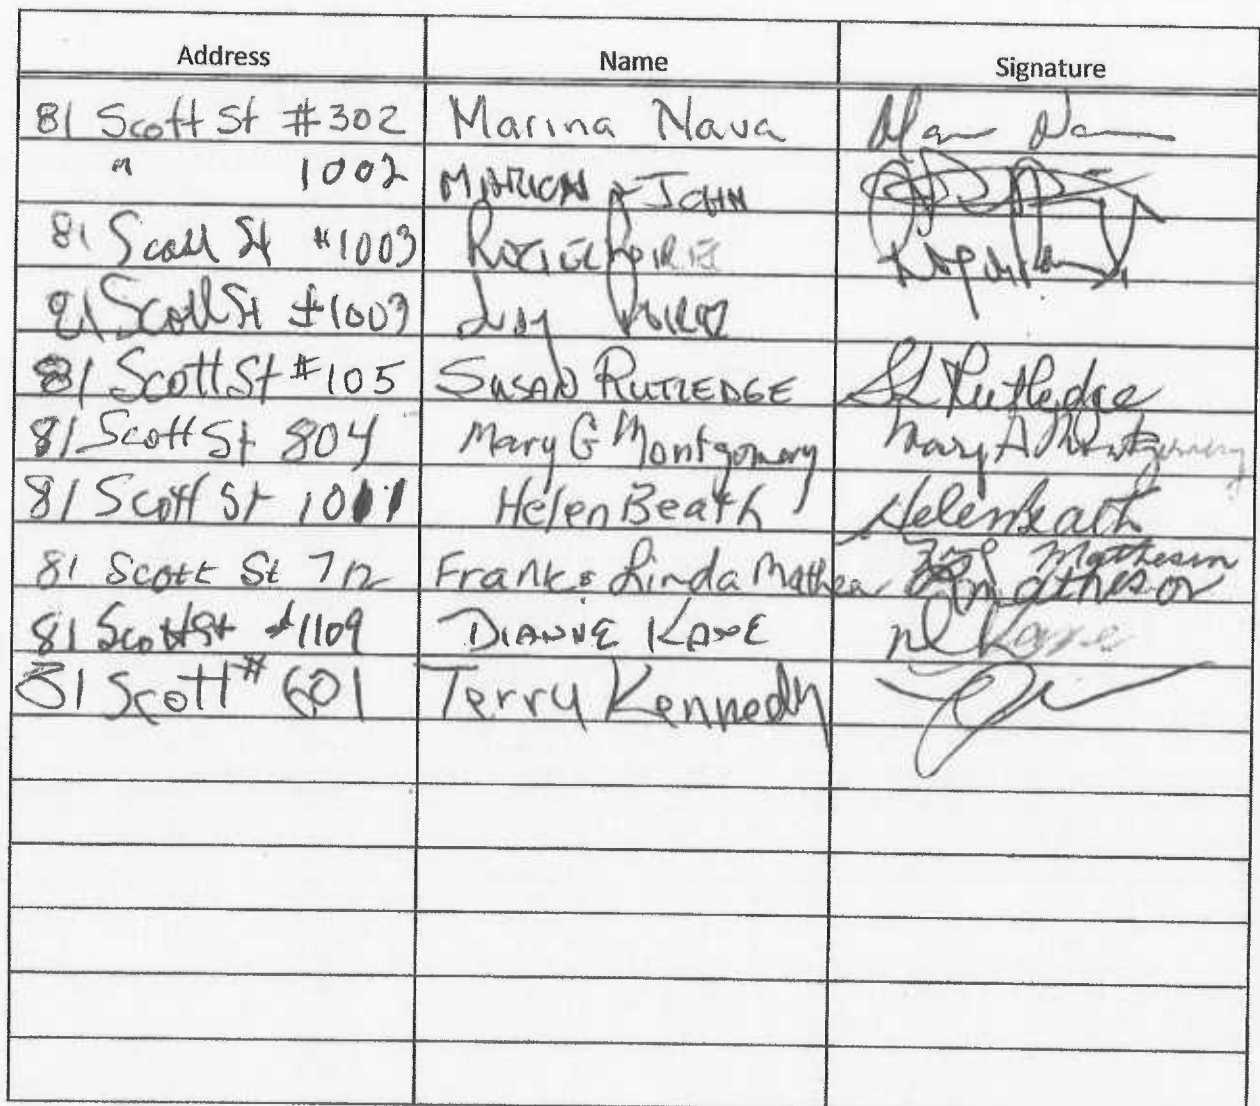 Address Name Signature
81 Scott St #302 Marina Nava
" 1002 MARION & JOHN
81 Scott St #1003
81 Scott St #1003
81 Scott St #105 SUSAN RUTLEDGE SL Rutledge
81 Scott St 804 Mary G Montgomery Mary A Montgomery
81 Scott St 1011 Helen Beath Helen Beath
81 Scott St 712 Frank & Linda Mathes Matheson
81 Scott St #1109 DIANNE KANE Kane
81 Scott # 601 Terry Kennedy